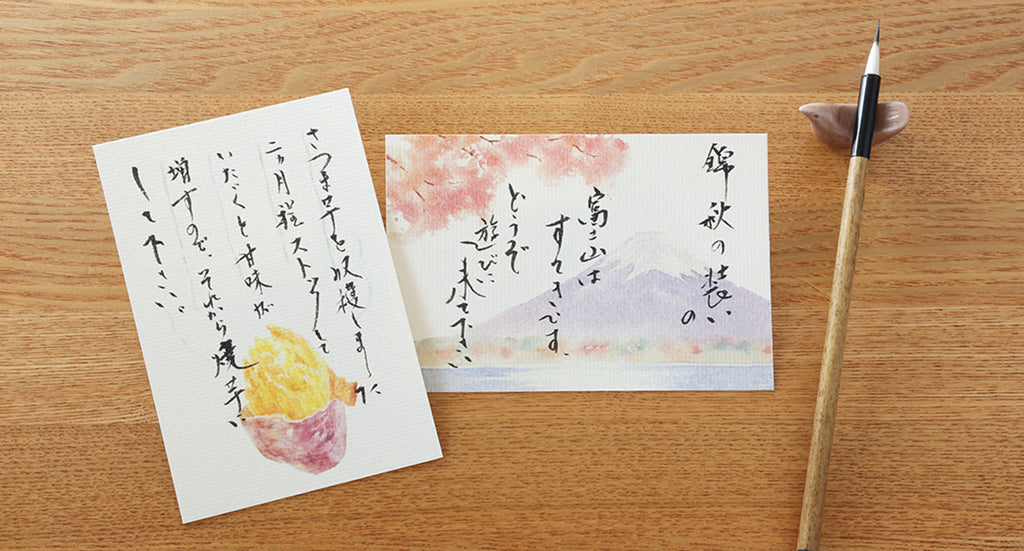 さつま芋を収穫しました
二ヵ月程ストックして
いただくと甘味が
増すので、それから焼芋に
して下さい
錦秋の装いの
富士山は
すてきです、
どうぞ
遊びに
来て下さい